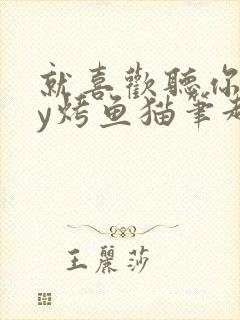 就喜歡聽你
y烤鱼猫筆趣
王麗莎